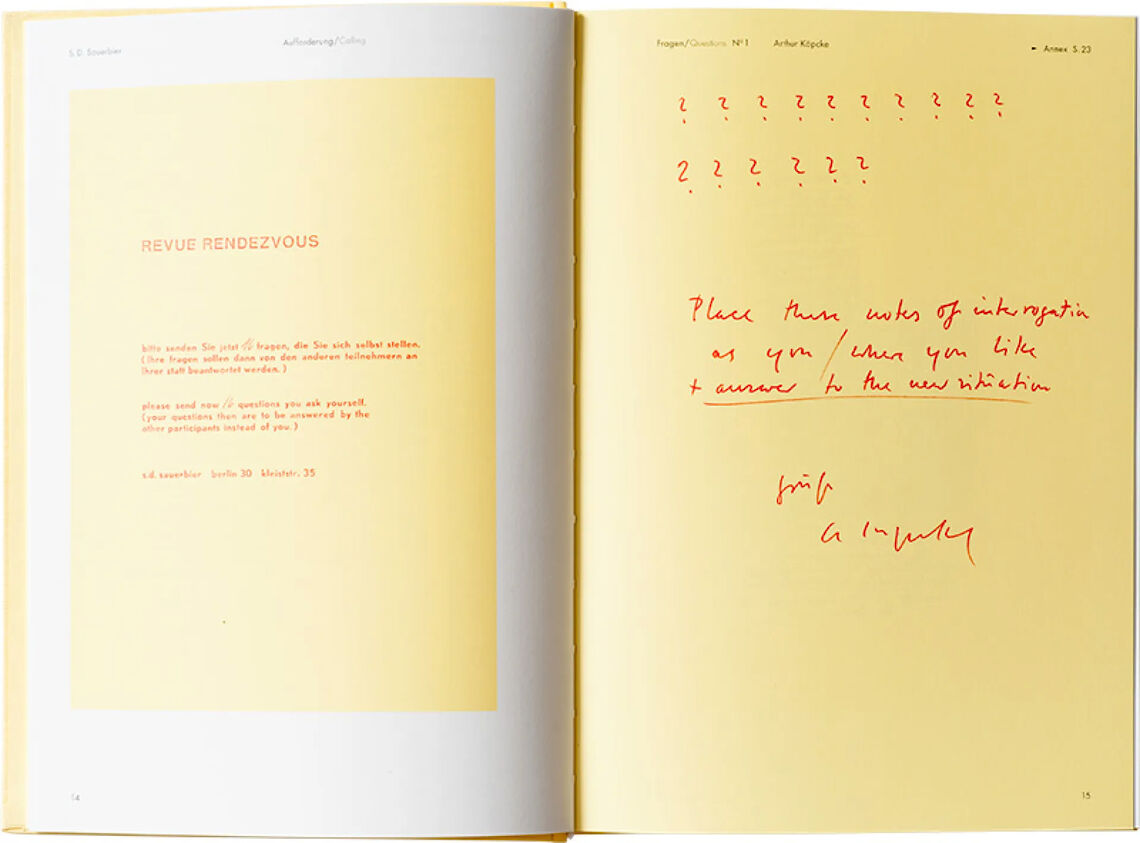 S. D. Sauerbier
Aufforderung/Calling
REVUE RENDEZVOUS
bitte senden Sie jetzt 16 fragen, die Sie sich selbst stellen.
(Ihre fragen sollen dann von den anderen teilnehmern an
Ihrer statt beantwortet werden.)
please send now 16 questions you ask yourself.
(your questions then are to be answered by the
other participants instead of you.)
s.d. sauerbier berlin 30 kleiststr. 35
14
Fragen/Questions Nº1 Arthur Köpcke
► Annex S. 23
? ? ? ? ? ? ? ? ? ?
? ? ? ? ? ?
Place these notes of interrogation
as you / where you like
+ answer to the new situation
15